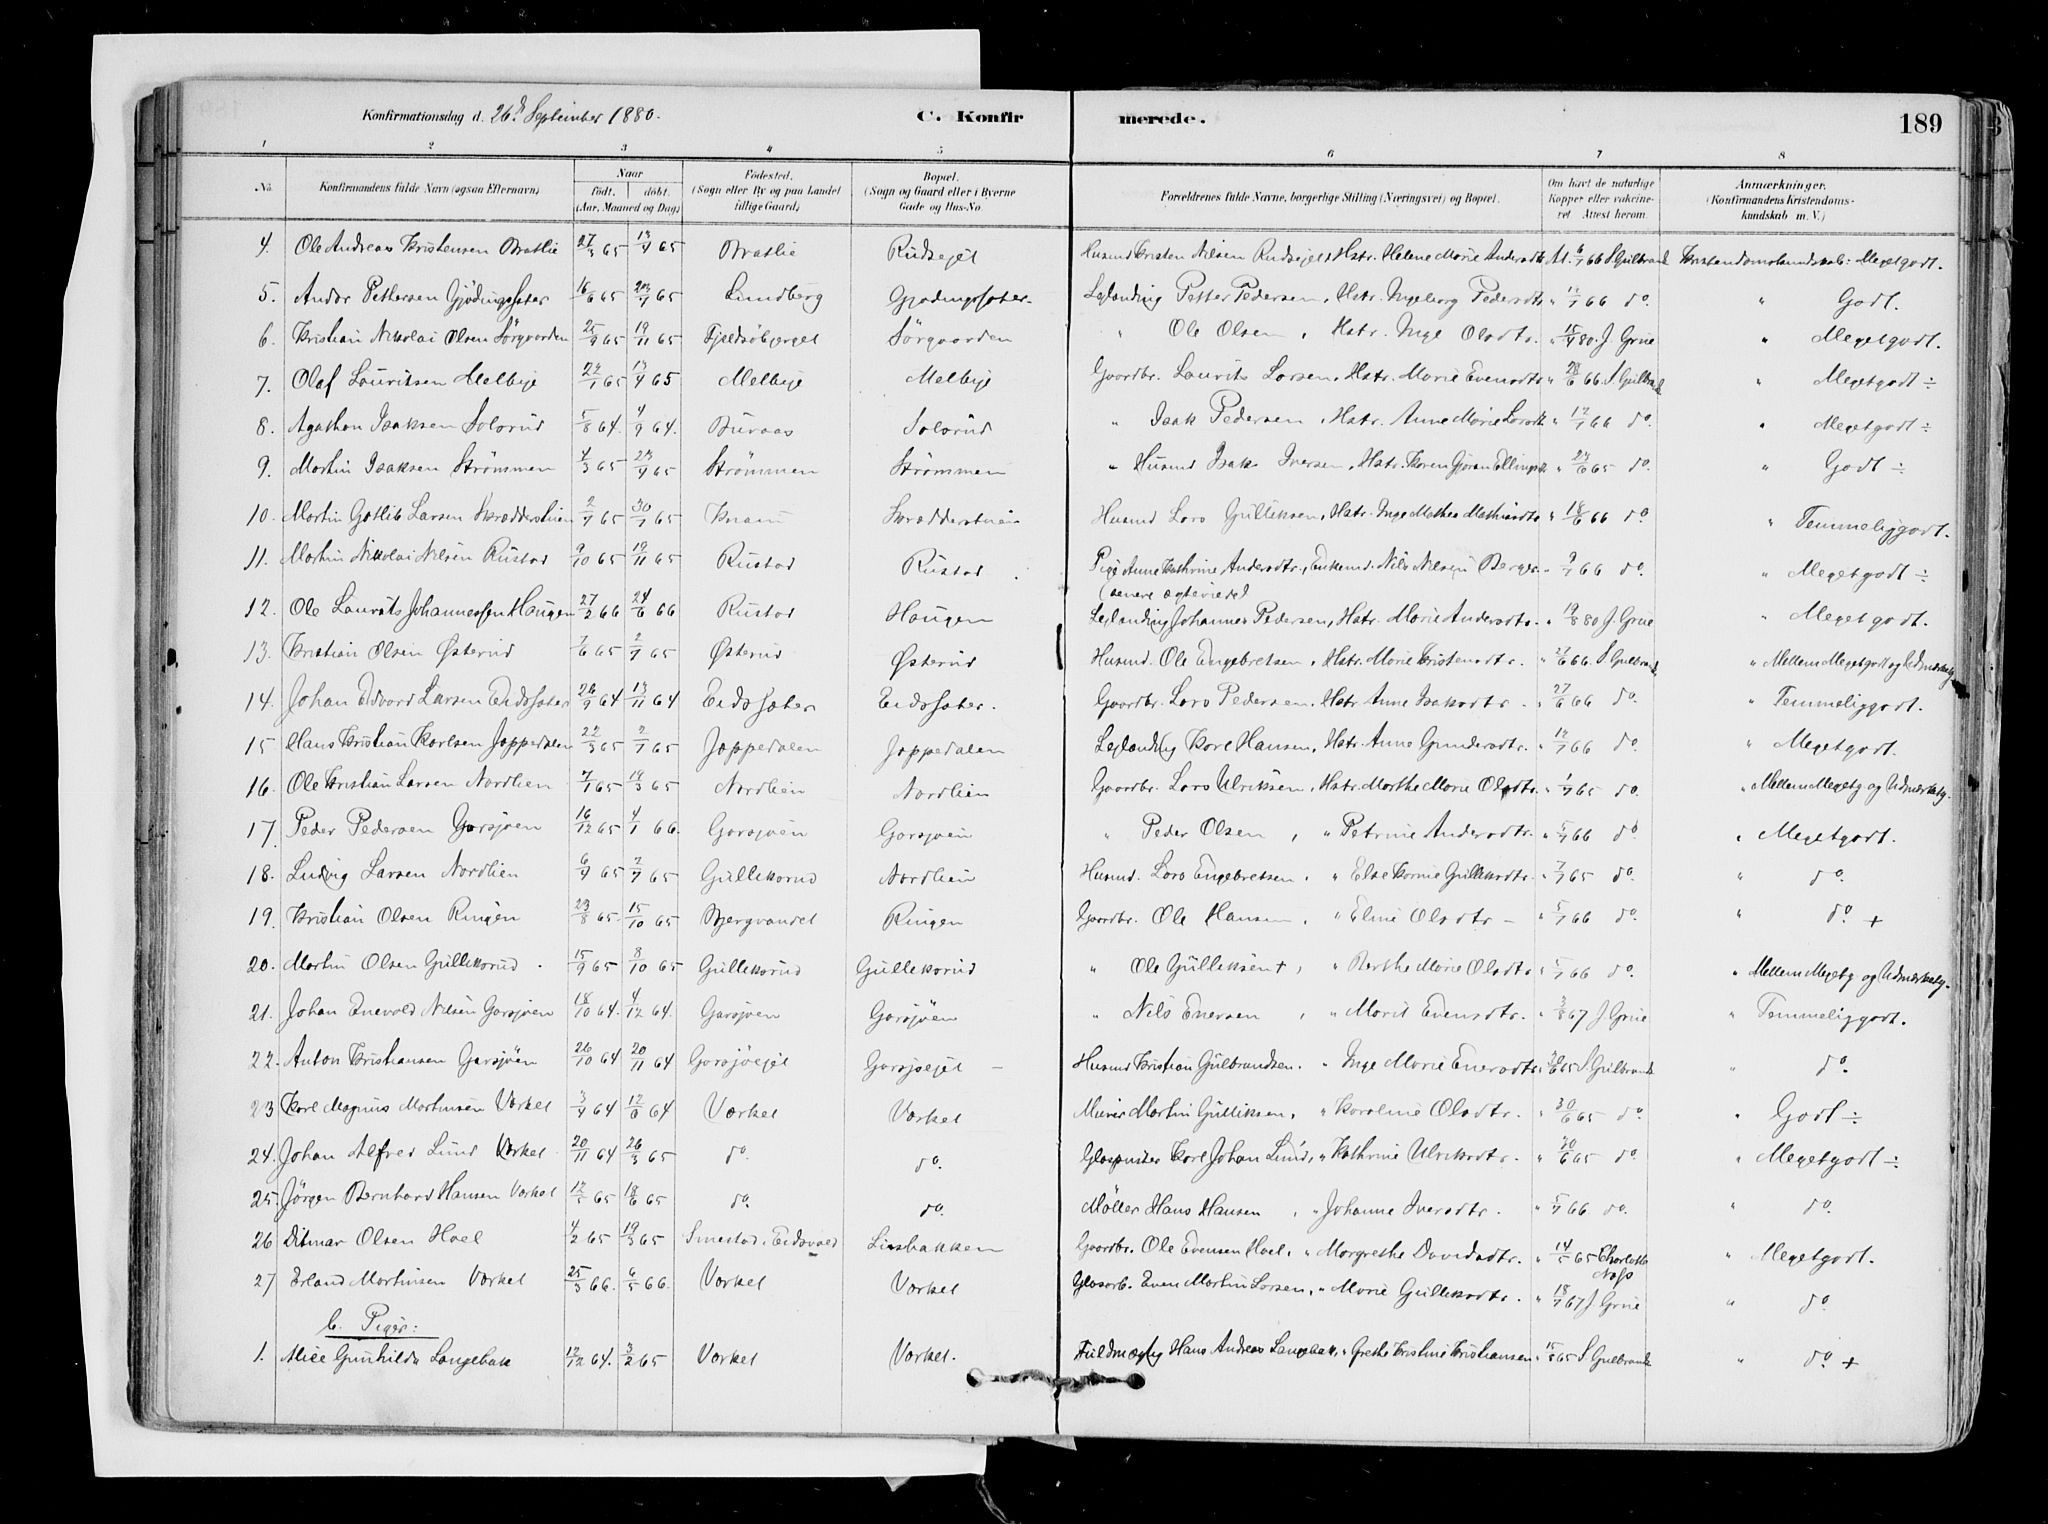 Konfirmationsdag d. 26de September 1880. C. Konfirmerede. 189
1 2 3 4 5 6 7 8
No. Konfirmandens fulde Navn (ogsaa Efternavn) Naar født. døbt. (Aar, Maaned og Dag) Fødested. (Sogn eller By og paa Landet tillige Gaard) Bopæl. (Sogn og Gaard eller i Byerne Gade og Hus-No. Forældrenes fulde Navne, borgerlige Stilling (Næringsvei) og Bopæl. Om havt de naturlige Kopper eller vakcineret Attest herom. Anmærkninger. (Konfirmandens Kristendomskundskab m. V.)
4. Ole Andreas Kristensen Bratlie 27/3 65 13/4 65 Bratlie Rudsejet Husmd Kristen Nilsen Rudsejet, Hstr. Helene Marie Andersdtr. At. 6/7 66 S. Gulbrands Kristendomskundskab: Megetgodt.
5. Andor Pettersen Gjødingsæter 16/6 65 23/7 65 Lundberg Gjødingsæter Leilænding Petter Pedersen, Hstr. Ingeborg Pedersdtr. " 12/7 66 do. " Godt.
6. Kristian Nikolai Olsen Sörgvorden 25/9 65 19/11 65 Fjeldsöbjerget Sörgvorden " Ole Olsen, Hstr. Inge Olsdtr. " 15/9 80 J. Grue " Megetgodt.
7. Olaf Lauritsen Melbye 22/1 65 13/4 65 Melbye Melbye Gaardbr. Laurits Larsen, Hstr. Marie Evensdtr. " 28/6 66 S. Gulbrands " Megetgodt ÷
8. Agathon Isaksen Solsrud 5/8 64. 4/9 64. Buraas Solsrud " Isak Pedersen, Hstr. Anne Marie Larsdtr. " 12/7 66 do. " Megetgodt ÷
9. Martin Isaksen Strömmen 4/3 65 23/4 65 Strömmen Strömmen " Husmd Isak Iversen, Hstr. Karen Gjöran Ellingsdtr. " 23/6 65 do. " Godt ÷
10. Martin Gotlib Larsen Skrædderstuen 2/7 65 30/7 65 Knain Skrædderstuen Husmd Lars Gulliksen, Hstr. Inge Mathea Mathiasdtr. " 18/6 66 do " Temmeliggodt.
11. Martin Nikolai Nilsen Rustad 9/10 65 19/11 65 Rustad Rustad Pige Anne Kathrine Andersdtr., Enkemd. Nils Nilsen Berger " 9/7 66 do. " Megetgodt ÷
(senere ægteviede)
12. Ole Laurits Johannessen Haugen 27/2 66 24/6 66 Rustad Haugen Leilænding Johannes Pedersen, Hstr. Marie Andersdtr. " 19/8 80 J. Grue " Megetgodt.
13. Kristian Olsen Østerud 7/6 65 2/7 65 Østerud Østerud Husmd. Ole Engebretsen, Hstr. Marie Kristensdtr. " 27/6 66. S. Gulbrands " Mellem Megetgodt og Udmærketg
14. Johan Edvard Larsen Eidssæter 26/9 64 13/11 64 Eidssæter Eidssæter. Gaardbr. Lars Pedersen, Hstr. Anne Isaksdtr. " 27/6 66 do. " Temmeliggodt.
15 Hans Kristian Karlsen Jappedalen 22/3 65 2/7 65 Jappedalen Jappedalen Leilænding Karl Hansen, Hstr. Anne Gundersdtr. " 12/7 66 do. " Megetgodt.
16. Ole Kristian Larsen Nordlien 7/1 65 19/3 65 Nordlien Nordlien Gaardbr. Lars Ulriksen, Hstr. Marthe Marie Olsdtr. " 1/7 65 do. " Mellem Megetg og Udmærketg.
17. Peder Pedersen Garsjøen 16/12 65 4/1 66. Garsjøen Garsjøen " Peder Olsen, " Petrine Andersdtr. " 5/7 66 do " Megetgodt.
18. Ludvig Larsen Nordlien 6/4 65 2/7 65 Gulliksrud Nordlien Husmd. Lars Engebretsen, " Else Karine Gulliksdtr. " 7/7 65 do. " do.
19. Kristian Olsen Ringen 23/8 65. 15/10 65 Bjergvandet Ringen Gaardbr. Ole Hansen, " Eline Olsdtr – " 5/7 66 do. " do. +
20. Martin Olsen Gulliksrud 15/9 65 8/10 65 Gulliksrud Gulliksrud " Ole Gulliksen +, " Berthe Marie Olsdtr. " 5/7 66 do. " Mellem Megetg og Udmærketg.
21. Johan Enevold Nilsen Garsjøen 18/10 64. 4/12 64. Garsjøen Garsjøen " Nils Enersen, " Marit Evensdtr. " 3/8 67 J. Grue " Temmeliggodt.
22. Anton Kristiansen Garsjøen 26/10 64 20/11 64 Garsjöejet Garsjøejet – Husmd Kristian Gulbrandsen. " Inge Marie Enersdtr. " 30/6 65 S. Gulbrands " do.
23 Karl Magnus Martinsen Værket 3/4 64 12/6 64 Værket Værket Murer Martin Gulliksen, " Karoline Olsdtr. " 30/6 65 do. " Godt ÷
24. Johan Alfred Lund Værket 20/11 64 26/3 65 do. do. Glaspuster Karl Johan Lund, " Kathrine Ulriksdtr. " 30/6 65 do. " Megetgodt ÷
25. Jörgen Bernhard Hansen Værket 12/5 65 18/6 65 do. do. Möller Hans Hansen, " Johanne Iversdtr. " 5/7 66 do. " do.
26 Ditmar Olsen Hoel 4/2 65 19/3 65 Smestad, Eidsvold Linsbakken Gaardbr. Ole Evensen Hoel, " Margrethe Davidsdtr. " 14/5 65 Charlotte Næss " Megetgodt.
27 Erland Martinsen Værket 25/3 66. 6/5 66. Værket Værket Glasarb. Even Martin Larsen, " Marie Gulliksdtr. " 18/7 67 J. Grue " do.
b. Piger:
1. Alice Gunhilda Langebak 12/12 64. 3/2 65 Værket Værket. Fuldmægtig Hans Andreas Langebak, " Grethe Kristine Kristiansen " 15/8 65 S. Gulbrands " do. +